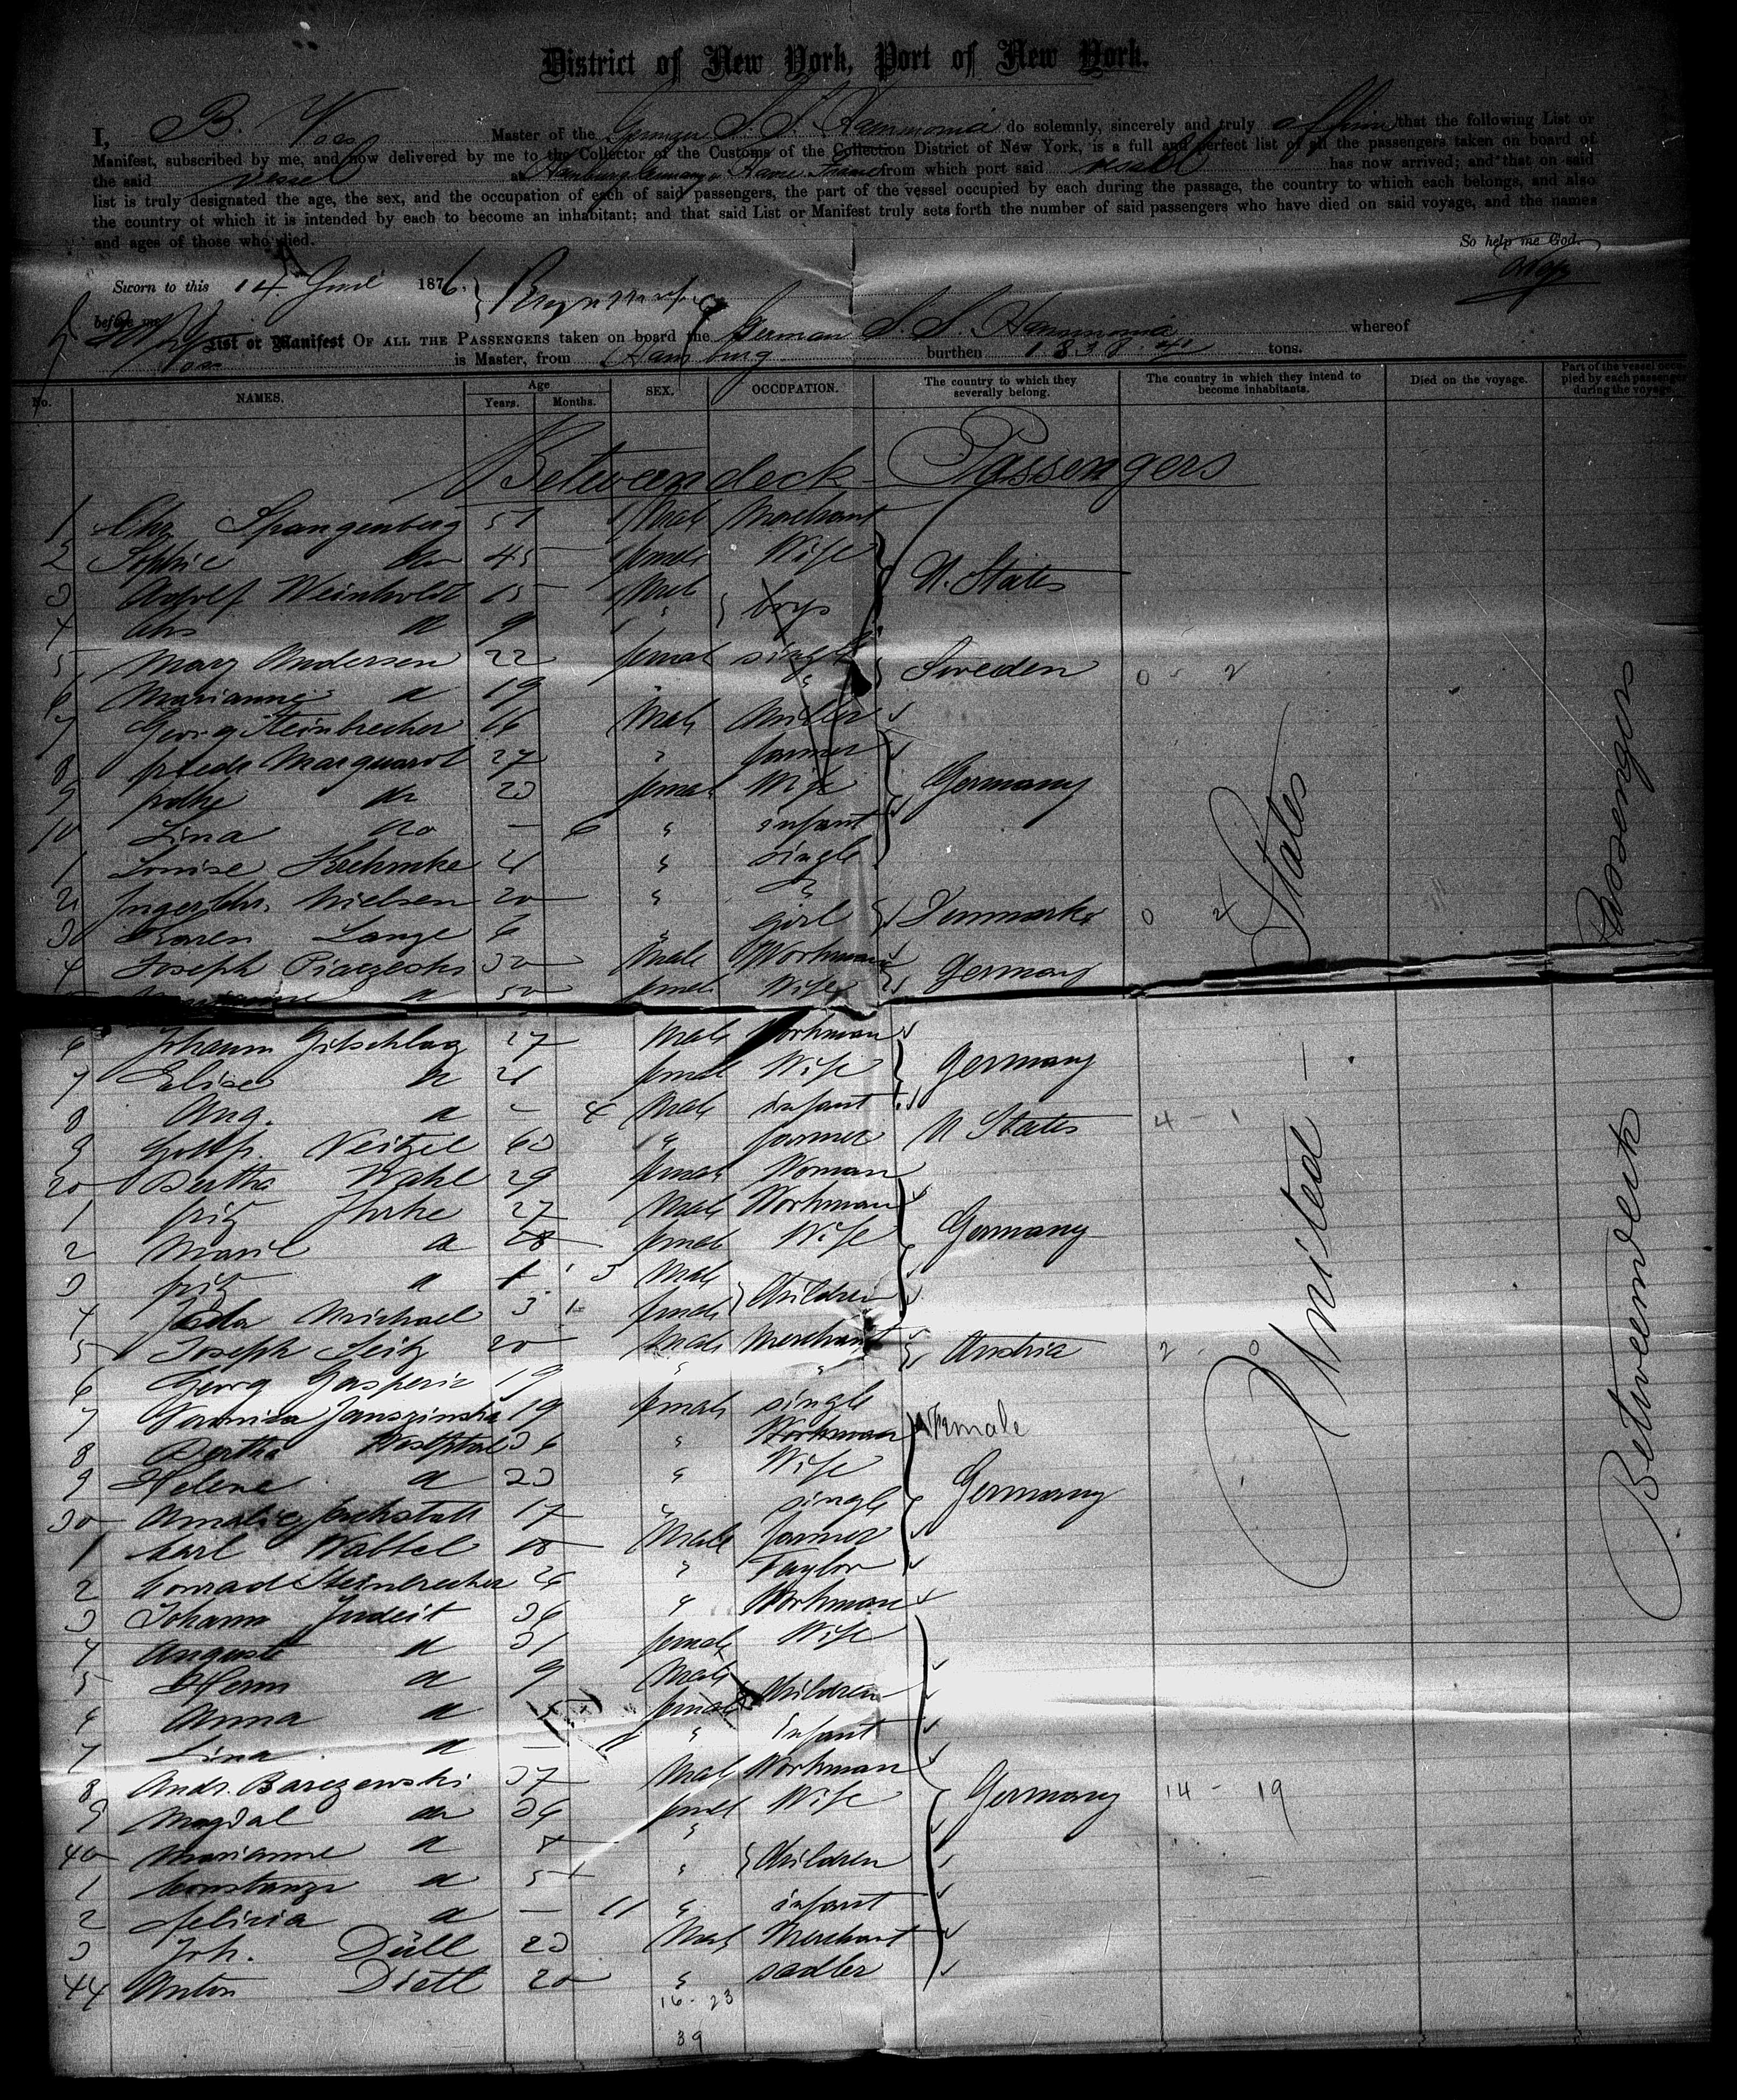 District of New York, Port of New York.
I, B. Voss Master of the German S. S. Hammonia do solemnly, sincerely and truly affirm that the following List or
Manifest, subscribed by me, and now delivered by me to the Collector of the Customs of the Collection District of New York, is a full and perfect list of all the passengers taken on board of
the said vessel at Hamburg Germany & Havre France from which port said vessel has now arrived; and that on said
list is truly designated the age, the sex, and the occupation of each of said passengers, the part of the vessel occupied by each during the passage, the country to which each belongs, and also
the country of which it is intended by each to become an inhabitant; and that said List or Manifest truly sets forth the number of said passengers who have died on said voyage, and the names
and ages of those who died.
So help me God.
Sworn to this 14 June 1876.
before me
List or Manifest OF ALL THE PASSENGERS taken on board the German S. S. Hammonia whereof
Voss is Master, from Hamburg burthen tons.
No. NAMES. Age Years. Months. SEX. OCCUPATION. The country to which they severally belong. The country in which they intend to become inhabitants. Died on the voyage. Part of the vessel occupied by each passenger during the voyage.
Betweendeck Passengers
1 Chr. Spangenberg 51 Male Merchant
2 Sophie do 45 female Wife U. States
3 Adolf Weinholdt 15 Male boys
4 a 9 "
5 Mary Andersen 22 female single Sweden 0 - 2
6 Marianne a 19 " "
7 Georg Steinbrecher 66 Male Miller
8 friedr Marquardt 27 " farmer
9 do 23 female Wife Germany
10 Lina do — 6 " infant
1 Louise 21 " single
2 Nielsen 20 " "
3 Karen Lange 6 " girl Denmark 0 2
4 Joseph 30 Male Workman Germany
a 50 female Wife
6 Johann 27 Male Workman
7 Elise a 21 female Wife Germany
8 Aug. a — 4 Male infant
9 Gottfr. Neitzel 63 " farmer U States 4 - 1
20 Bertha Wahl 29 female Woman
1 fritz 27 Male Workman
2 Marie a 28 female Wife Germany
3 fritz a 1 3 Male Children
4 Michael 3 female
5 Joseph Seitz 20 Male Merchant Austria 2 0
6 Georg Gasperic 19 " "
7 19 female single
8 Bertha Westphal 36 " Workman Female
9 Helene a 23 " Wife
30 Amalie 17 " single Germany
1 Carl 18 Male farmer
2 Conrad Steinbrecher 26 " Taylor
3 Johann Judeit 36 " Workman
4 Auguste a 31 female Wife
5 Herm a 9 Male Children
6 Anna a female
7 Lina a — " Infant
8 Andr. Barczewski 37 Male Workman
9 Magdal do 36 female Wife Germany 14 - 19
40 Marianne a " Children
1 Constanze a 5 "
2 Felicia a — 11 " infant
3 Joh. Düll 23 Male Merchant
44 Anton Dietl 20 " sadler
16 - 23
39
United States
Betweendeck Passengers